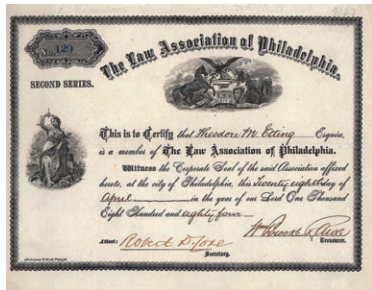 No. 129
The Law Association of Philadelphia.
SECOND SERIES.
This is to Certify that Theodore M. Etting Esquire,
is a member of The Law Association of Philadelphia.
Witness the Corporate Seal of the said Association affixed
hereto, at the city of Philadelphia, this twenty eighth day of
April in the year of our Lord One Thousand
Eight Hundred and eighty four
Treasurer.
Attest: Robert D. Coxe
Secretary.